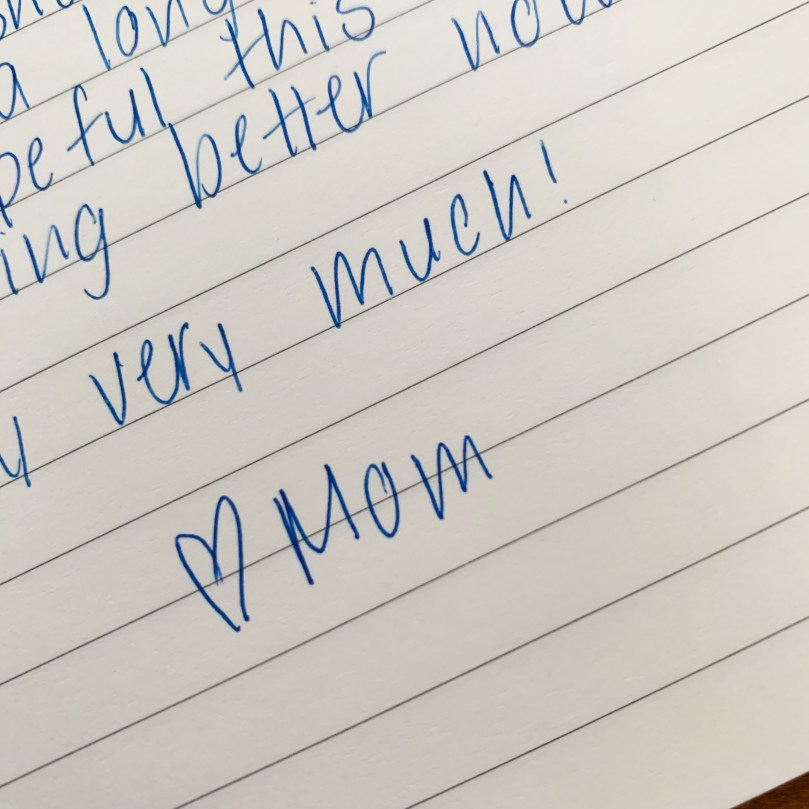 a long
peful this
ing better now
y very much!
♡ Mom